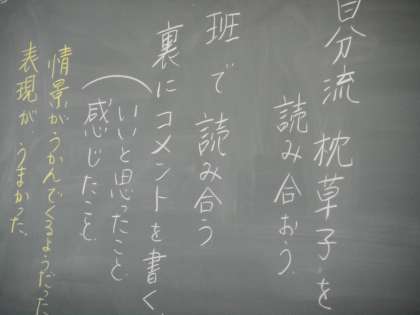 自分流 枕草子を
読み合おう
班で 読み合う
裏にコメントを書く
いいと思ったこと
感じたこと
情景がうかんでくるようだった
表現が、うまかった